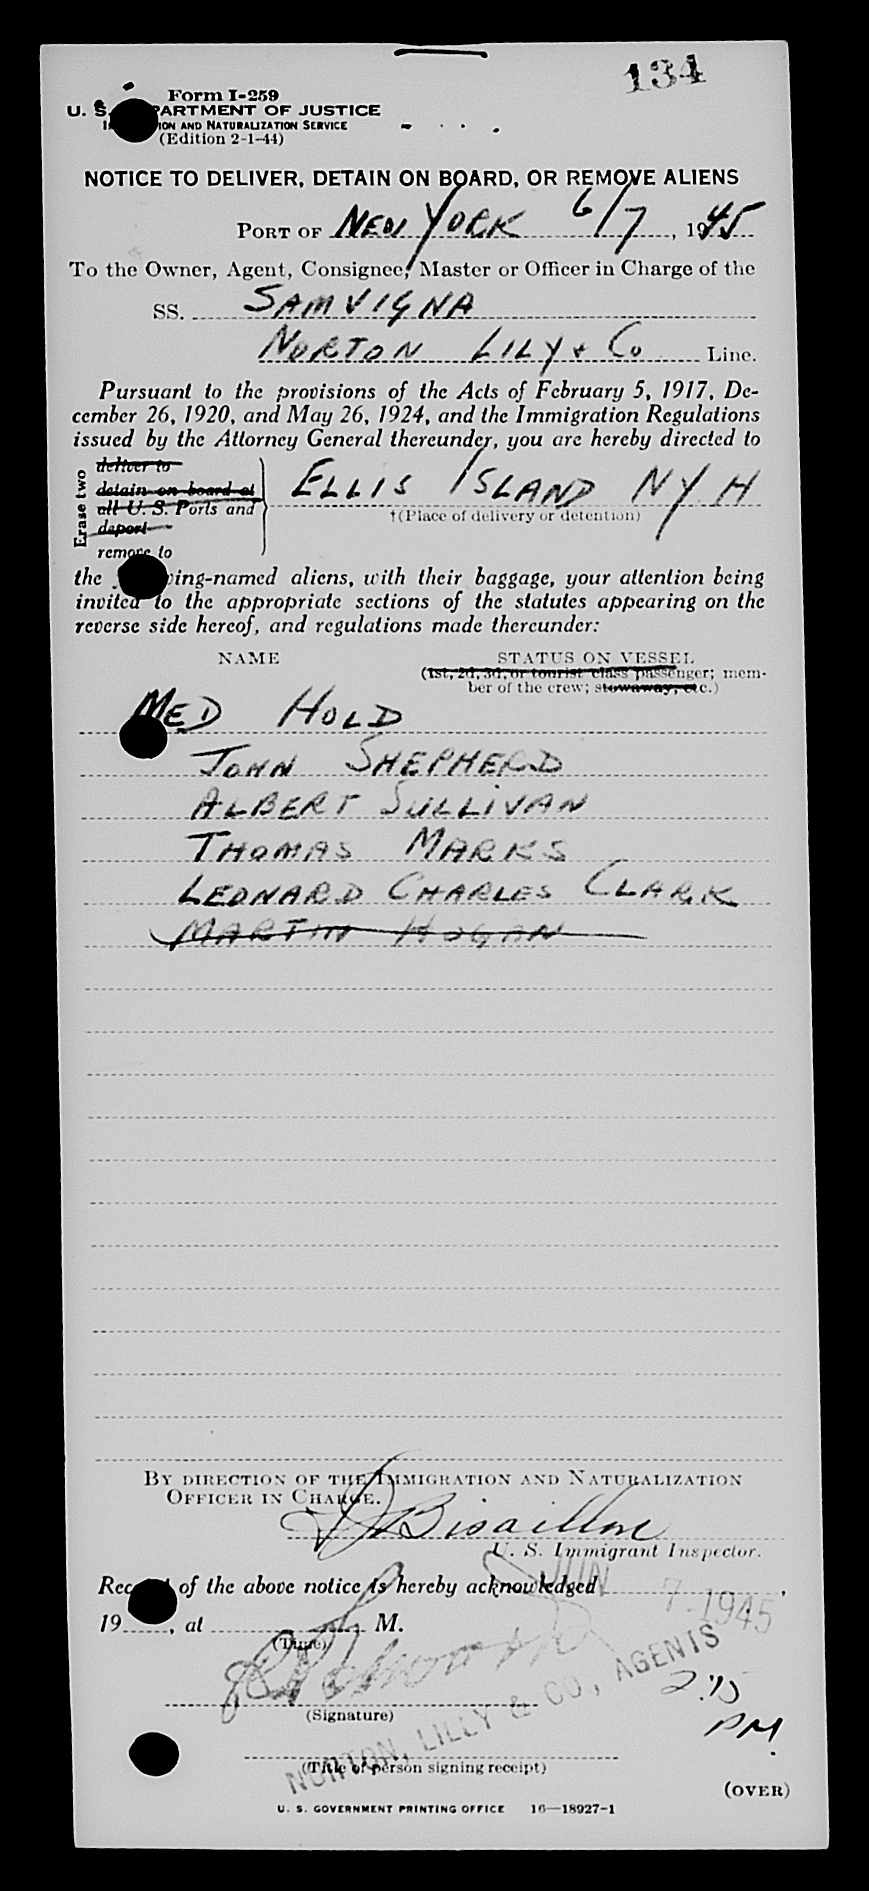 134
Form I-259
U. S. DEPARTMENT OF JUSTICE
IMMIGRATION AND NATURALIZATION SERVICE
(Edition 2-1-44)
NOTICE TO DELIVER, DETAIN ON BOARD, OR REMOVE ALIENS
PORT OF NEW YORK 6/7, 1945
To the Owner, Agent, Consignee, Master or Officer in Charge of the
SS. SAMVIGNA
NORTON LILY & Co Line.
Pursuant to the provisions of the Acts of February 5, 1917, De-
cember 26, 1920, and May 26, 1924, and the Immigration Regulations
issued by the Attorney General thereunder, you are hereby directed to
Erase two
deliver to
detain on board at
all U. S. Ports and
deport
remove to
ELLIS ISLAND NYH
†(Place of delivery or detention)
the following-named aliens, with their baggage, your attention being
invited to the appropriate sections of the statutes appearing on the
reverse side hereof, and regulations made thereunder:
NAME STATUS ON VESSEL
(1st, 2d, 3d, or tourist class passenger; mem-
ber of the crew; stowaway, etc.)
MED HOLD
JOHN SHEPHERD
ALBERT SULLIVAN
THOMAS MARKS
LEONARD CHARLES CLARK
MARTIN HOGAN
BY DIRECTION OF THE IMMIGRATION AND NATURALIZATION
OFFICER IN CHARGE.
Bisaillon
U. S. Immigrant Inspector.
Receipt of the above notice is hereby acknowledged JUN 7-1945,
19, at M.
(Time)
(Signature)
NORTON, LILLY & CO, AGENTS
2.15
PM
(Title of person signing receipt)
(OVER)
U. S. GOVERNMENT PRINTING OFFICE 16—18927-1